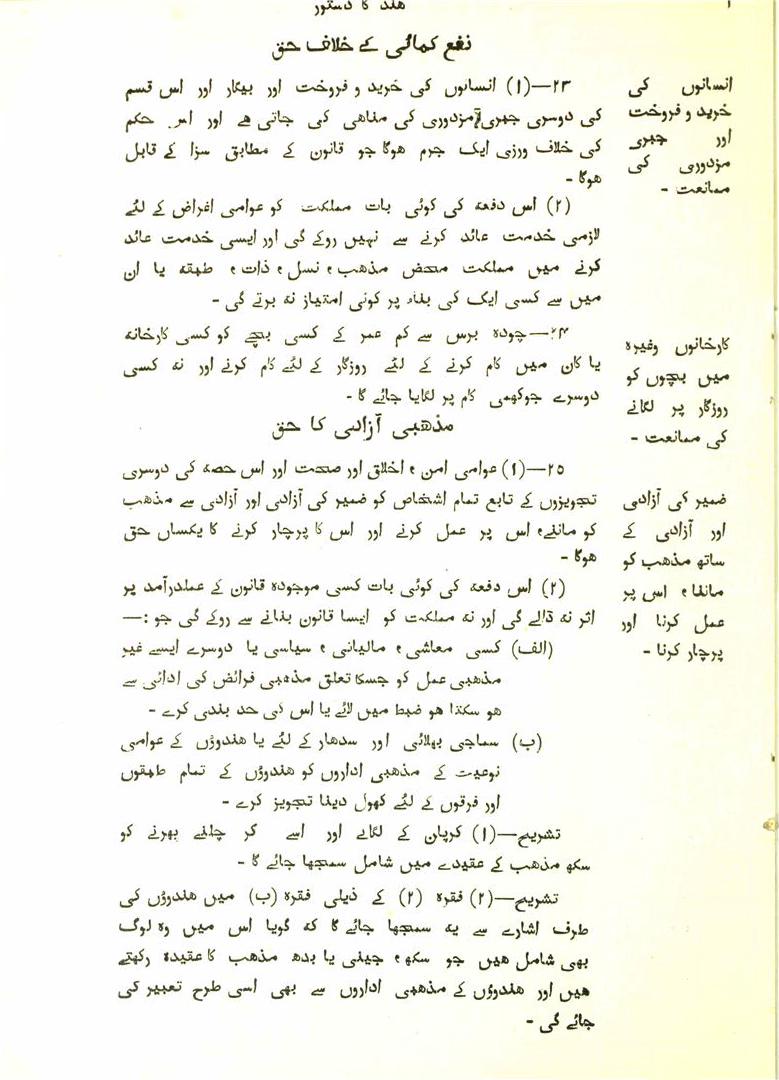 ھند کا دستور
نفع کمائی کے خلاف حق
انسانوں کی
خرید و فروخت
اور جبری
مزدوری کی
ممانعت -
۲۳—(۱) انسانوں کی خرید و فروخت اور بیگار اور اس قسم
کی دوسری جبری مزدوری کی مناھی کی جاتی ھے اور اس حکم
کی خلاف ورزی ایک جرم ھوگا جو قانون کے مطابق سزا کے قابل
ھوگا -
(۲) اس دفعہ کی کوئی بات مملکت کو عوامی اغراض کے لئے
لازمی خدمت عائد کرنے سے نہیں روکے گی اور ایسی خدمت عائد
کرنے میں مملکت محض مذھب، نسل، ذات، طبقہ یا ان
میں سے کسی ایک کی بناء پر کوئی امتیاز نہ برتے گی -
کارخانوں وغیرہ
میں بچوں کو
روزگار پر لگانے
کی ممانعت -
۲۴—چودہ برس سے کم عمر کے کسی بچے کو کسی کارخانہ
یا کان میں کام کرنے کے لئے روزگار کے لئے کام کرنے اور نہ کسی
دوسرے جوکھمی کام پر لگایا جائے گا -
مذھبی آزادی کا حق
ضمیر کی آزادی
اور آزادی کے
ساتھ مذھب کو
ماننا، اس پر
عمل کرنا اور
پرچار کرنا -
۲۵—(۱) عوامی امن، اخلاق اور صحت اور اس حصہ کی دوسری
تجویزوں کے تابع تمام اشخاص کو ضمیر کی آزادی اور آزادی سے مذھب
کو ماننے، اس پر عمل کرنے اور اس کا پرچار کرنے کا یکساں حق
ھوگا -
(۲) اس دفعہ کی کوئی بات کسی موجودہ قانون کے عملدرآمد پر
اثر نہ ڈالے گی اور نہ مملکت کو ایسا قانون بنانے سے روکے گی جو :—
(الف) کسی معاشی، مالیاتی، سیاسی یا دوسرے ایسے غیر
مذھبی عمل کو جسکا تعلق مذھبی فرائض کی ادائی سے
ھو سکتا ھو ضبط میں لائے یا اس کی حد بندی کرے -
(ب) سماجی بھلائی اور سدھار کے لئے یا ھندوؤں کے عوامی
نوعیت کے مذھبی اداروں کو ھندوؤں کے تمام طبقوں
اور فرقوں کے لئے کھول دینا تجویز کرے -
تشریح—(۱) کرپان کے لگانے اور اسے کر چلنے پھرنے کو
سکھ مذھب کے عقیدے میں شامل سمجھا جائے گا -
تشریح—(۲) فقرہ (۲) کے ذیلی فقرہ (ب) میں ھندوؤں کی
طرف اشارے سے یہ سمجھا جائے گا کہ گویا اس میں وہ لوگ
بھی شامل ھیں جو سکھ، جینی یا بدھ مذھب کا عقیدہ رکھتے
ھیں اور ھندوؤں کے مذھبی اداروں سے بھی اسی طرح تعبیر کی
جائے گی -